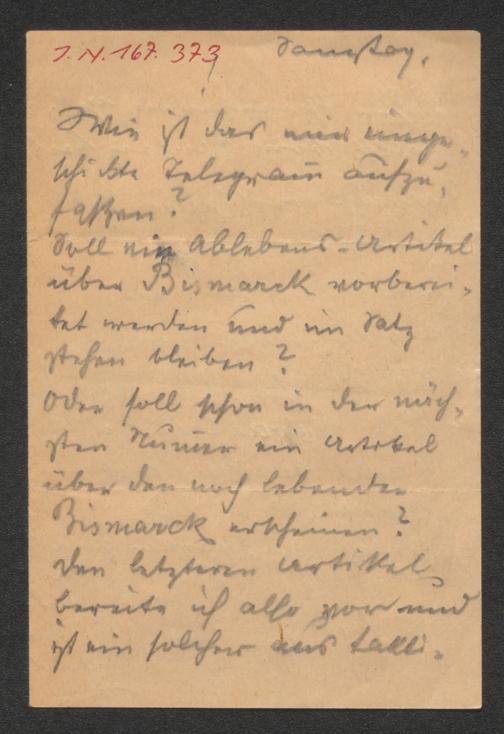 J. N. 167.373
Samstag.
Wie ist das mir einge-
schickte Telegram aufzu-
faßen?
Soll ein Ablebens-Artikel
über Bismarck vorberei-
tet werden und im Satz
stehen bleiben?
Oder soll schon in der näch-
sten Numer ein Artikel
über den noch lebenden
Bismarck erscheinen?
Den letzteren Artikel
bereite ich also vor und
ist ein solcher aus